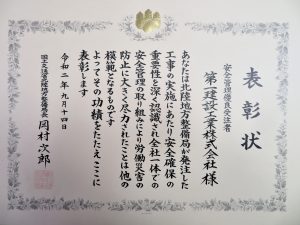 表彰状
安全管理優良受注者
第一建設工業株式会社 様
あなたは北陸地方整備局が発注した
工事の実施にあたり安全確保の
重要性を深く認識され全社一体での
安全管理の取り組みにより労働災害の
防止に大きく尽力されたことは他の
模範となるものです
よってその功績をたたえここに
表彰します
令和二年九月十四日
国土交通省北陸地方整備局長 岡村次郎